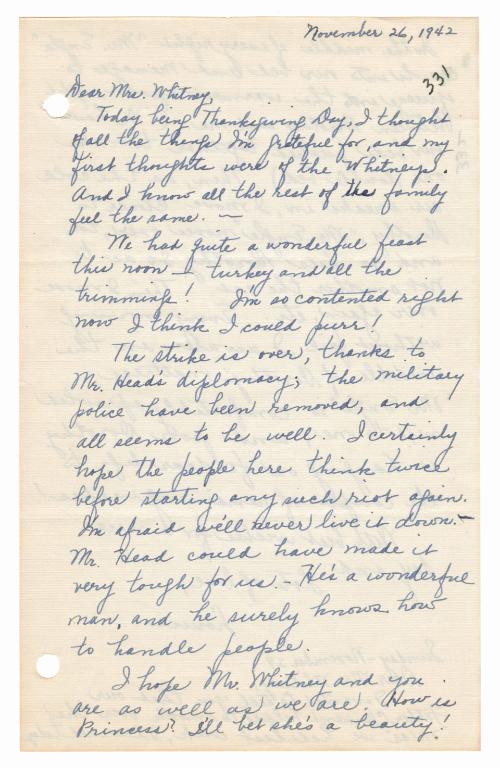 November 26, 1942
331
Dear Mrs. Whitney,
Today being Thanksgiving Day, I thought
of all the things I'm grateful for, and my
first thoughts were of the Whitneys.
And I know all the rest of the family
feel the same. —
We had quite a wonderful feast
this noon — turkey and all the
trimmings! I'm so contented right
now I think I could purr!
The strike is over, thanks to
Mr. Head's diplomacy; the military
police have been removed, and
all seems to be well. I certainly
hope the people here think twice
before starting any such riot again.
I'm afraid we'll never live it down. —
Mr. Head could have made it
very tough for us. - He's a wonderful
man, and he surely knows how
to handle people.
I hope Mr. Whitney and you
are as well as we are. How is
Princess? I'll bet she's a beauty!